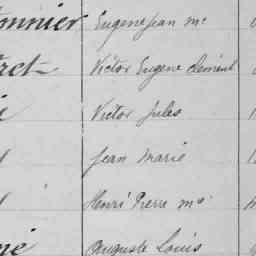 onnier Eugene Jean Me
ret Victor Eugene Clément
Victor Jules
Jean Marie
Henri Pierre Me
Auguste Louis